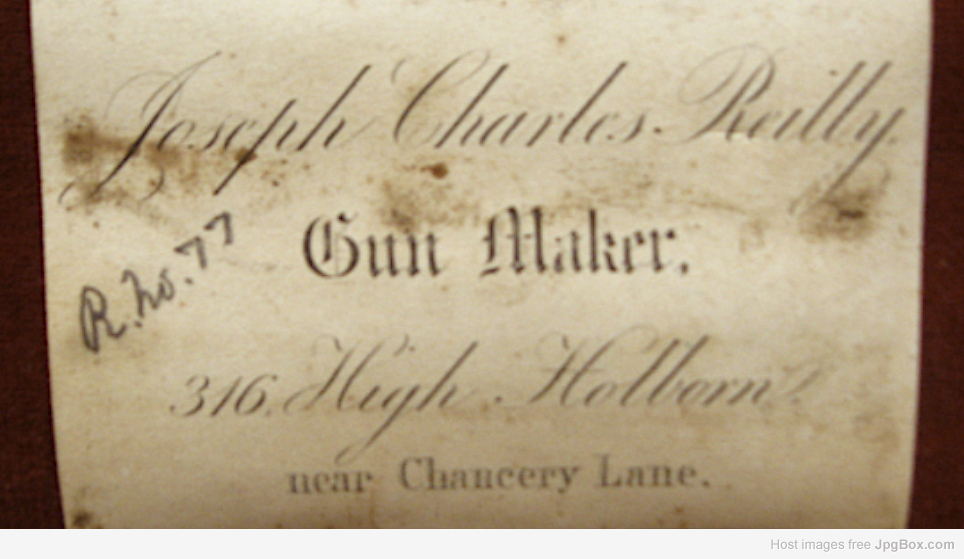 Joseph Charles Reilly.
Gun Maker.
R. No. 77
316. High Holborn.
near Chancery Lane.
Host images free JpgBox.com